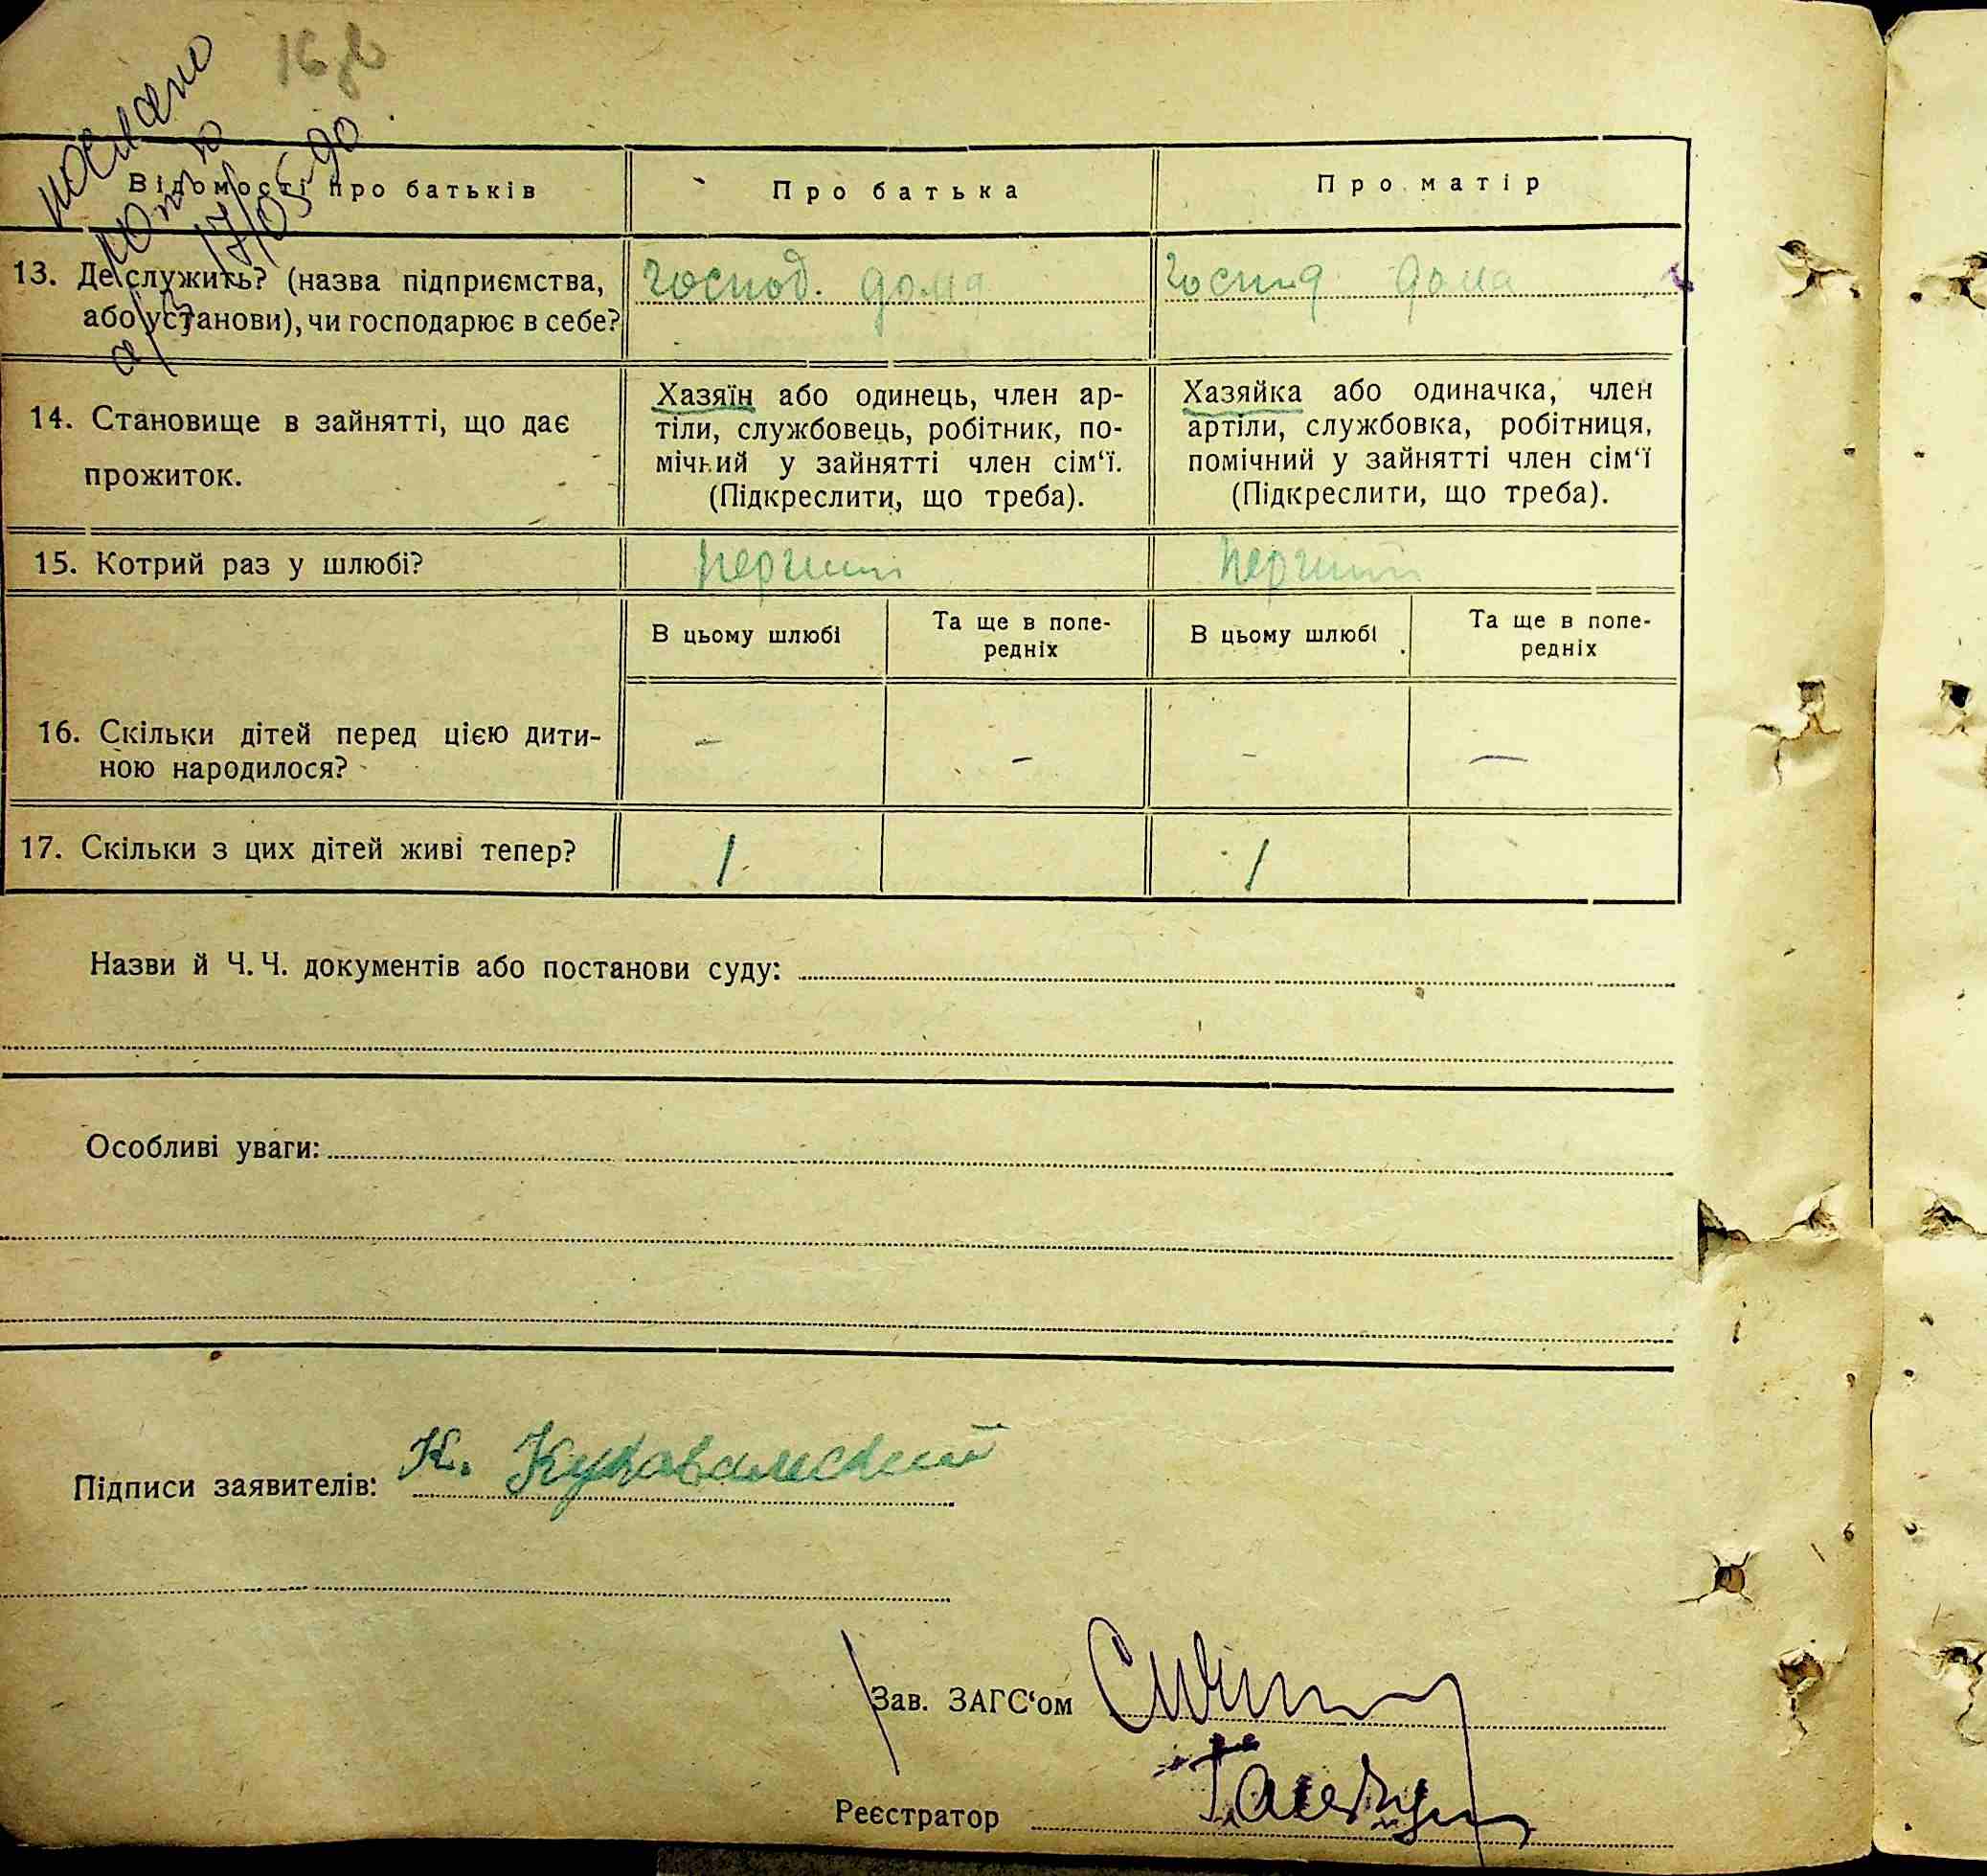 послано
копію
17/05-90
а/з
Відомості про батьків
Про батька
Про матір
13. Де служить? (назва підприємства,
або установи), чи господарює в себе?
господ. дома
господ дома
14. Становище в зайнятті, що дає
прожиток.
Хазяїн або одинець, член ар-
тіли, службовець, робітник, по-
мічний у зайнятті член сім'ї.
(Підкреслити, що треба).
Хазяйка або одиначка, член
артіли, службовка, робітниця,
помічний у зайнятті член сім'ї
(Підкреслити, що треба).
15. Котрий раз у шлюбі?
перший
перший
В цьому шлюбі
Та ще в попе-
редніх
В цьому шлюбі
Та ще в попе-
редніх
16. Скільки дітей перед цією дити-
ною народилося?
– – – –
17. Скільки з цих дітей живі тепер?
1
1
Назви й Ч.Ч. документів або постанови суду:
Особливі уваги:
Підписи заявителів: К.
Зав. ЗАГС'ом
Реєстратор